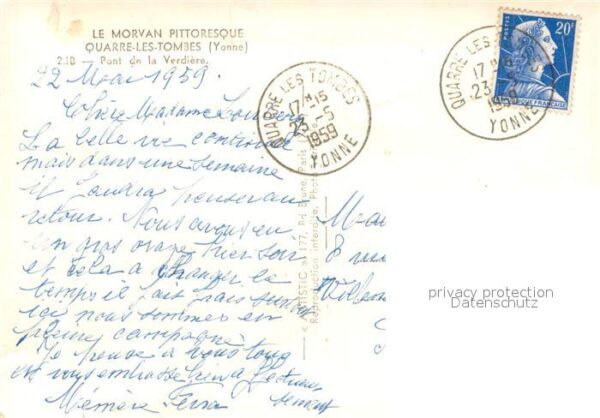 LE MORVAN PITTORESQUE
QUARRE-LES-TOMBES (Yonne)
21B Pont de la Verdière.
22 Mai 1959.
Chère Madame
La belle vie continue
mais dans une semaine
il faudra penser au
retour. Nous avons eu
un gros orage hier soir
et cela a changer le
temps il fait frais surtout
ici nous sommes en
pleine campagne
Je pense a vous tous
et vous embrasse bien affectueu
sement
Mémère
QUARRE LES TOMBES
17H15
23-5
1959
YONNE
QUARRE LES
17
23
YONNE
20F
177, Rd Brune, Paris
Reproduction interdite. Photo
8 rue
privacy protection
Datenschutz